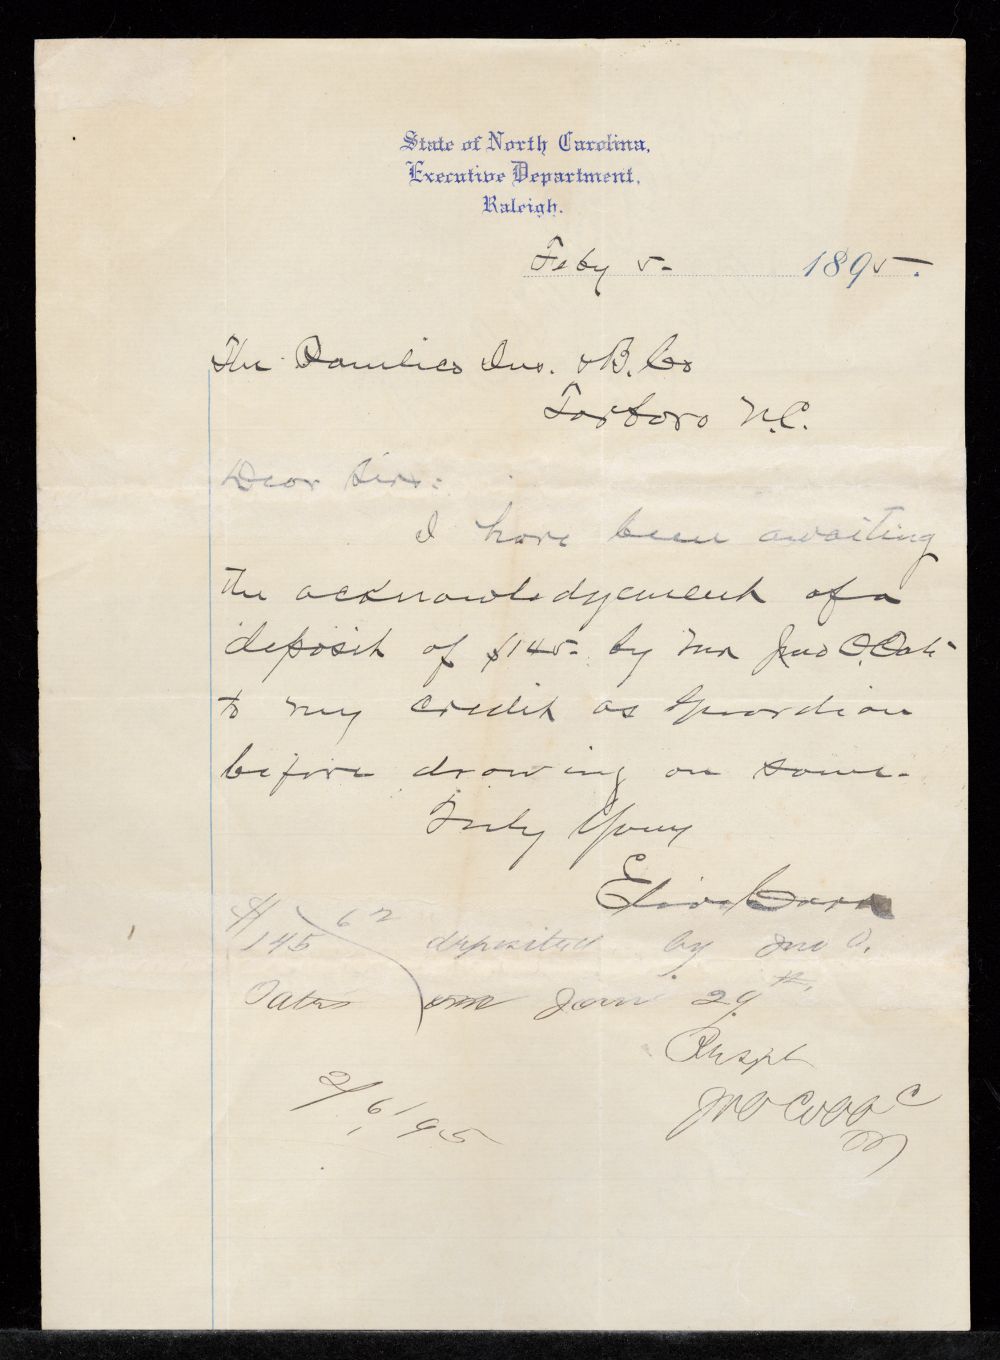 State of North Carolina,
Executive Department,
Raleigh.
Feby 5- 1895.
The Pamlico Ins. & B. Co
Tarboro N.C.
Dear Sirs:
I have been awaiting
the acknowledgement of a
deposit of $145- by Mr Jno O. Oates
to my credit as Guardian
before drawing on same-
Truly Yours
Elias Carr
$145 deposited by Jno O.
Oates on Jany 29th.
Respt
2/6/95